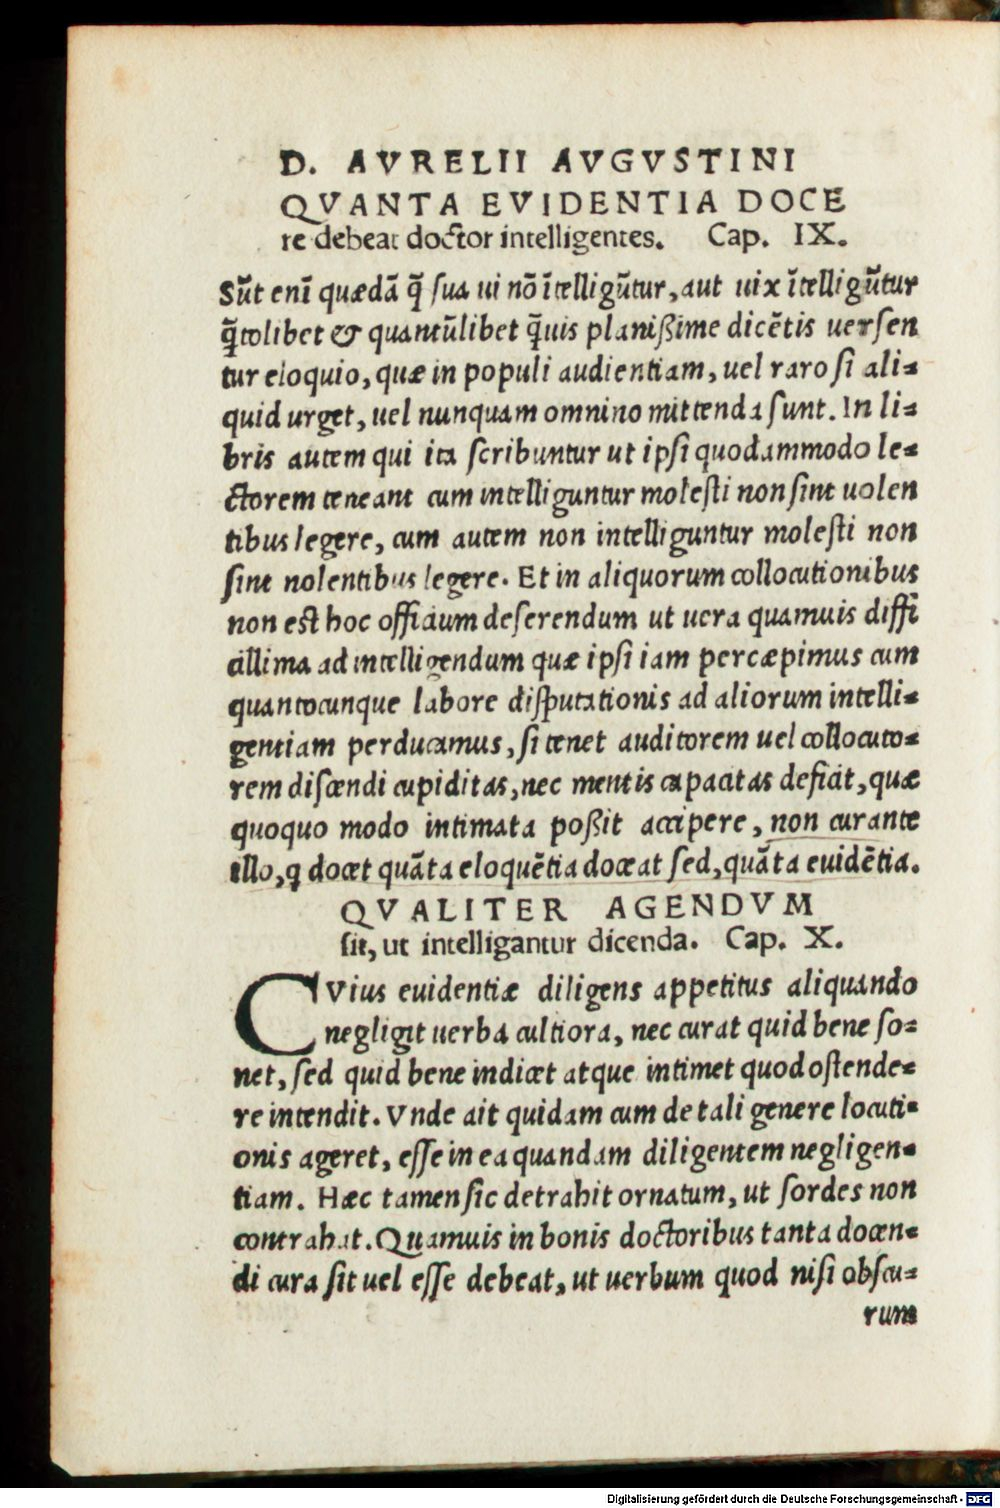 D. AVRELII AVGVSTINI
QVANTA EVIDENTIA DOCE
re debeat doctor intelligentes. Cap. IX.
Sūt enī quædā q̄ sua ui nō ītelligūtur, aut uix ītelligūtur
q̄tolibet & quantūlibet q̄uis planißime dicētis uersen
tur eloquio, quæ in populi audientiam, uel raro si ali-
quid urget, uel nunquam omnino mittenda sunt. In li-
bris autem qui ita scribuntur ut ipsi quodammodo le-
ctorem teneant cum intelliguntur molesti non sint uolen
tibus legere, cum autem non intelliguntur molesti non
sint nolentibus legere. Et in aliquorum collocutionibus
non est hoc officium deserendum ut uera quamuis diffi
cillima ad intelligendum quæ ipsi iam percæpimus cum
quantocunque labore disputationis ad aliorum intelli-
gentiam perducamus, si tenet auditorem uel collocuto-
rem discendi cupiditas, nec mentis capacitas deficit, quæ
quoquo modo intimata poßit accipere, non curante
illo, q docet quāta eloquētia doceat sed, quāta euidētia.
QVALITER AGENDVM
sit, ut intelligantur dicenda. Cap. X.
CVius euidentiæ diligens appetitus aliquando
negligit uerba cultiora, nec curat quid bene so-
net, sed quid bene indicet atque intimet quod ostende-
re intendit. Vnde ait quidam cum de tali genere locuti-
onis ageret, esse in ea quandam diligentem negligen-
tiam. Hæc tamen sic detrahit ornatum, ut sordes non
contrahat. Quamuis in bonis doctoribus tanta docen-
di cura sit uel esse debeat, ut uerbum quod nisi obscu-
rum
Digitalisierung gefördert durch die Deutsche Forschungsgemeinschaft - DFG